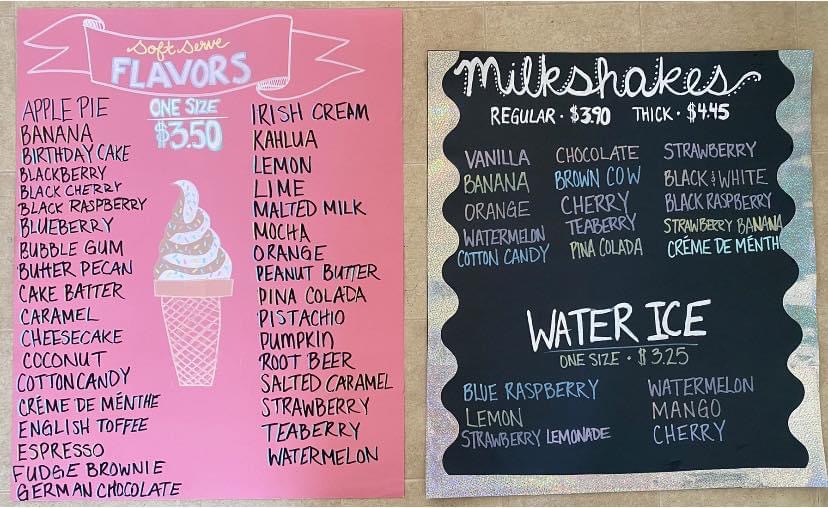 Soft Serve
FLAVORS
ONE SIZE
$3.50
APPLE PIE
BANANA
BIRTHDAY CAKE
BLACKBERRY
BLACK CHERRY
BLACK RASPBERRY
BLUEBERRY
BUBBLE GUM
BUTTER PECAN
CAKE BATTER
CARAMEL
CHEESECAKE
COCONUT
COTTON CANDY
CRÉME DE MÉNTHE
ENGLISH TOFFEE
ESPRESSO
FUDGE BROWNIE
GERMAN CHOCOLATE
IRISH CREAM
KAHLUA
LEMON
LIME
MALTED MILK
MOCHA
ORANGE
PEANUT BUTTER
PINA COLADA
PISTACHIO
PUMPKIN
ROOT BEER
SALTED CARAMEL
STRAWBERRY
TEABERRY
WATERMELON
Milkshakes
REGULAR · $3.90 THICK · $4.45
VANILLA CHOCOLATE STRAWBERRY
BANANA BROWN COW BLACK & WHITE
ORANGE CHERRY BLACK RASPBERRY
WATERMELON TEABERRY STRAWBERRY BANANA
COTTON CANDY PINA COLADA CRÉME DE MÉNTH
WATER ICE
ONE SIZE · $3.25
BLUE RASPBERRY WATERMELON
LEMON MANGO
STRAWBERRY LEMONADE CHERRY